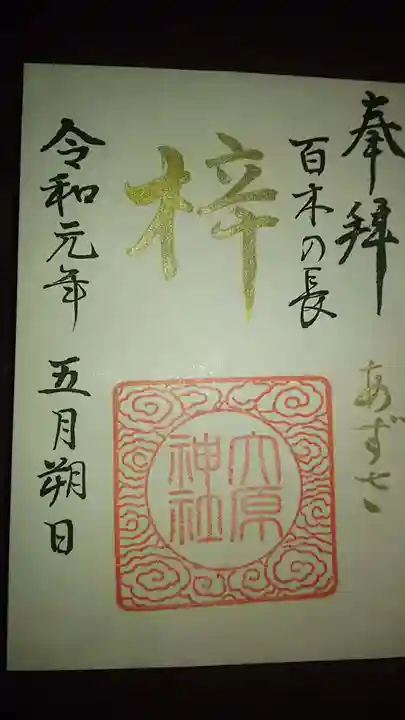 奉拝
あずさ
百木の長
梓
令和元年 五月朔日
大原
神社